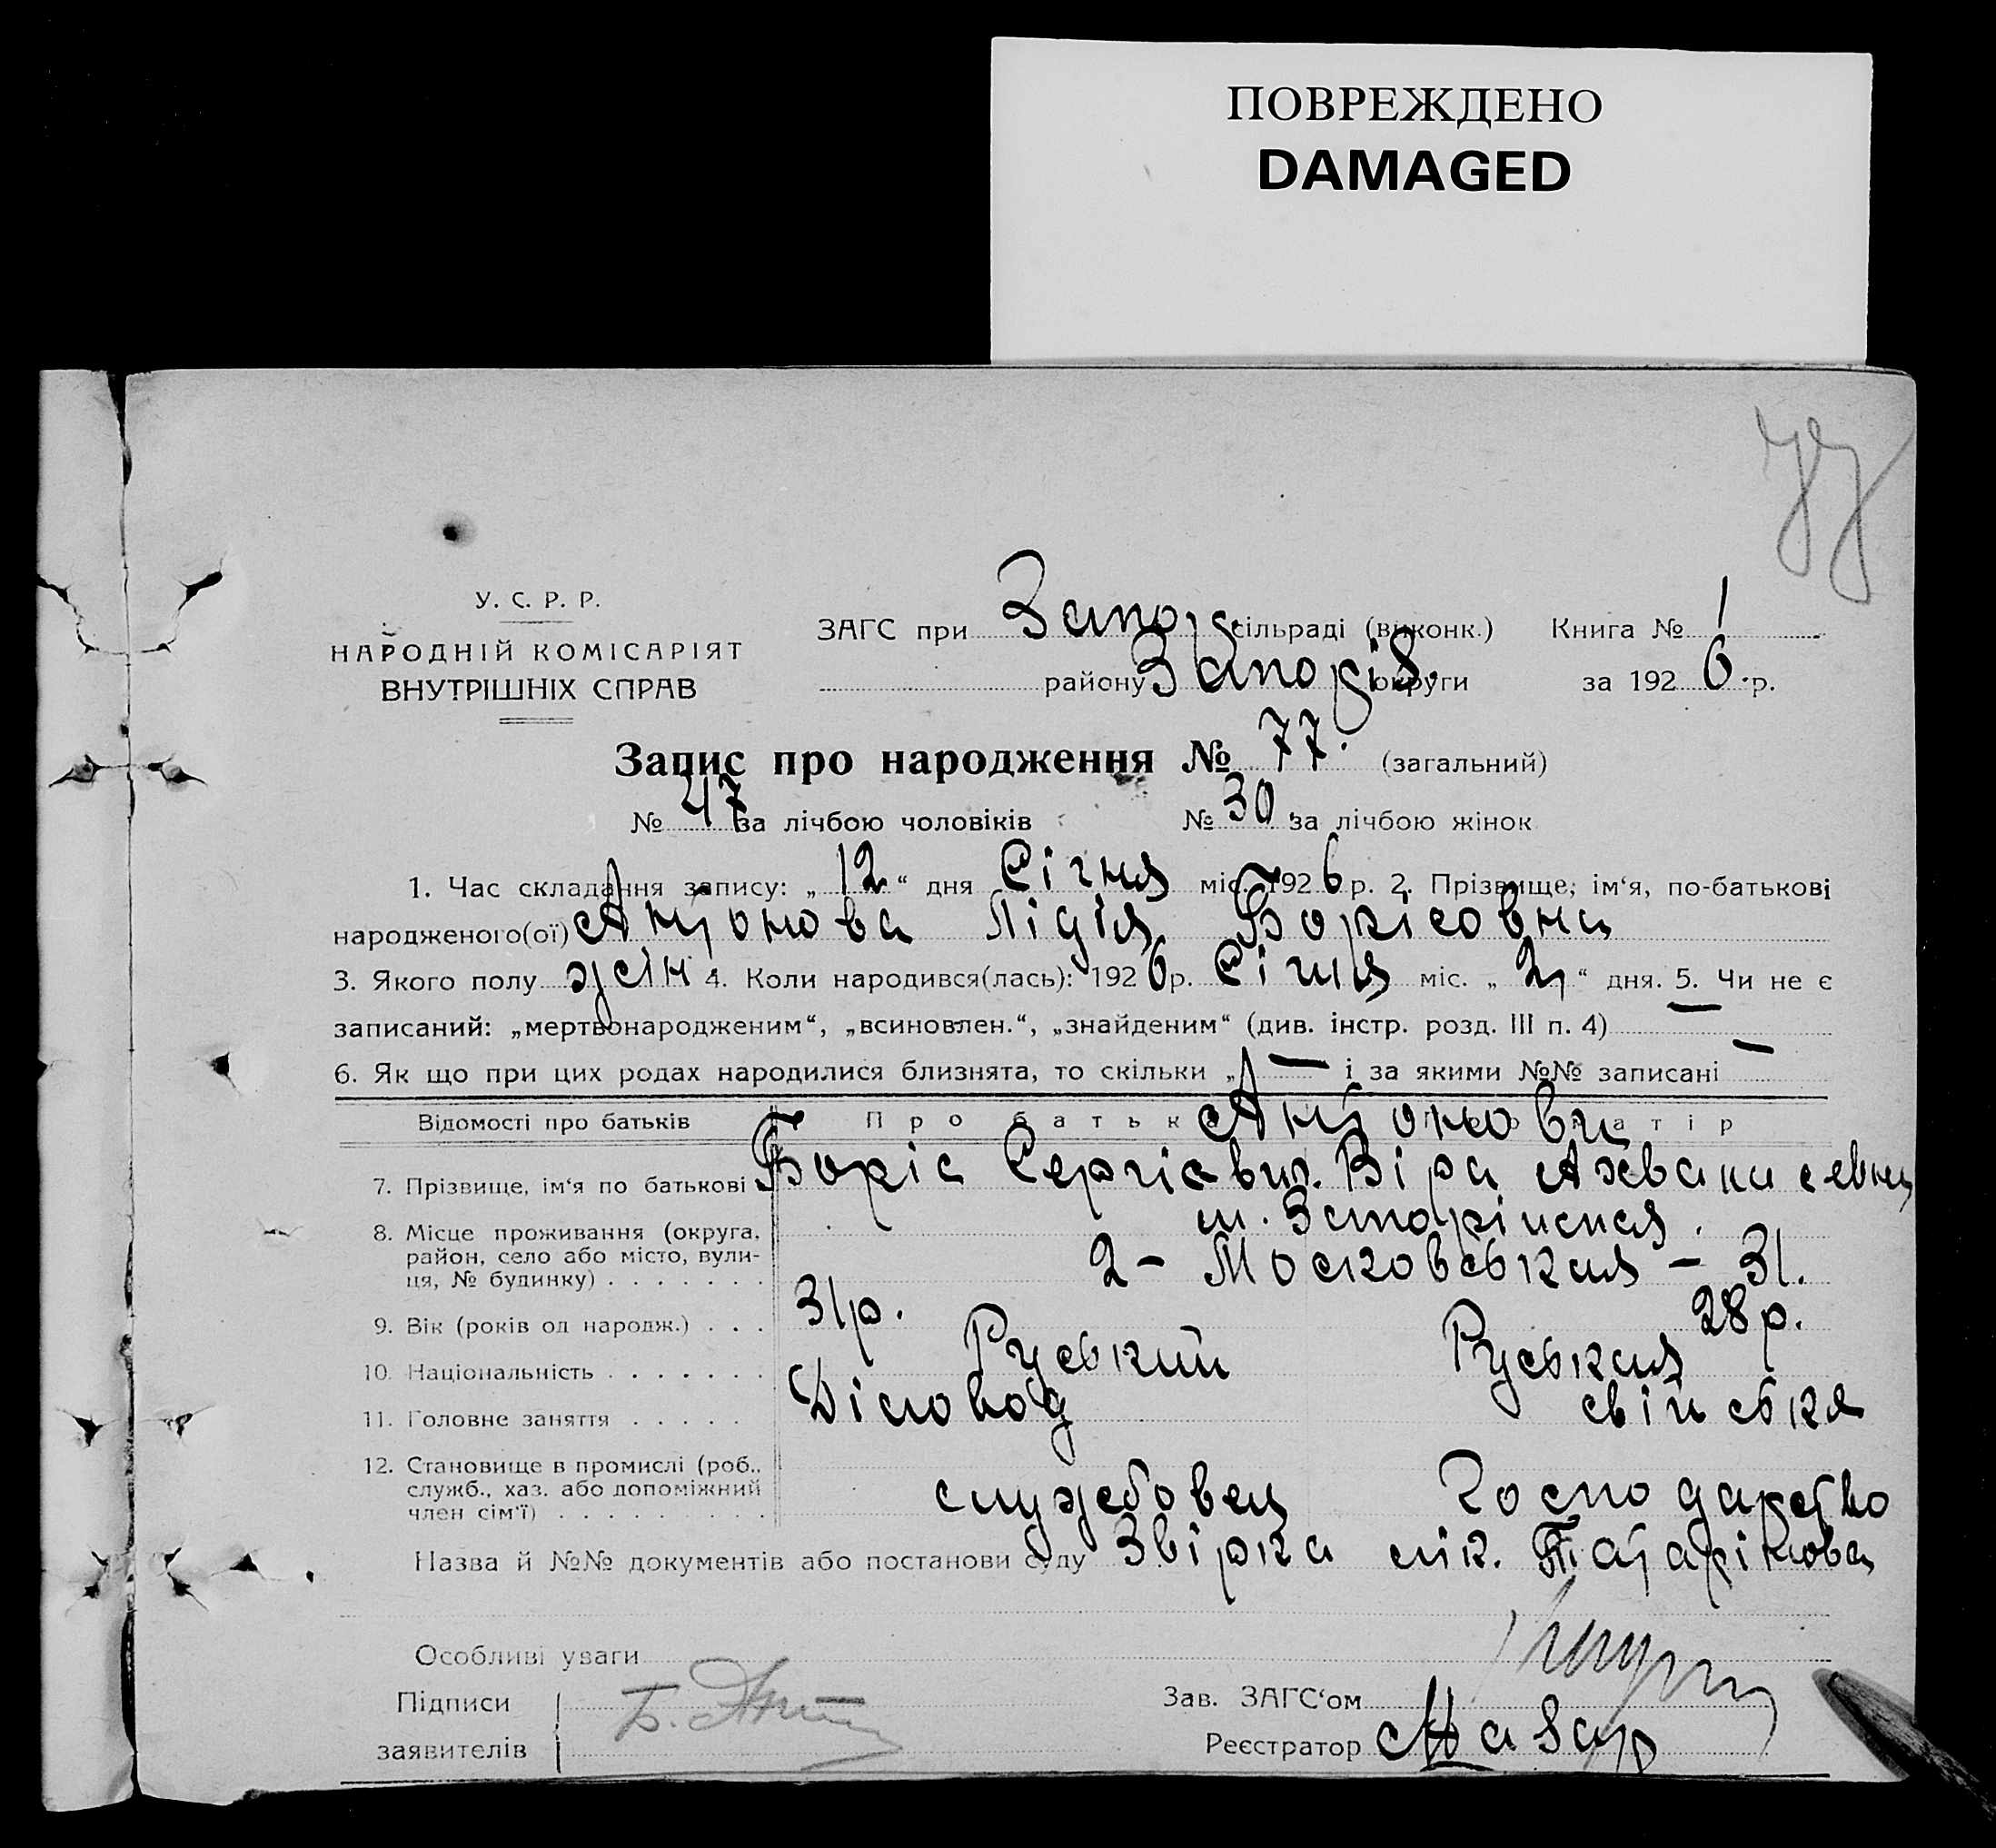 ПОВРЕЖДЕНО
DAMAGED
77
У. С. Р. Р.
НАРОДНІЙ КОМІСАРІЯТ
ВНУТРІШНІХ СПРАВ
ЗАГС при Запор. сільраді (виконк.) Книга № 1
району Запоріз. округи за 1926 р.
Запис про народження № 77. (загальний)
№ 47 за лічбою чоловіків № 30 за лічбою жінок
1. Час складання запису: „12“ дня Січня міс. 1926 р. 2. Прізвище, ім‘я, по-батькові
народженого(ої) Антонова Лідія Борісовна
3. Якого полу жін 4. Коли народився(лась): 1926 р. Січня міс. „2“ дня. 5. Чи не є
записаний: „мертвонародженим“, „всиновлен.“, „знайденим“ (див. інстр. розд. III п. 4) —
6. Як що при цих родах народилися близнята, то скільки „— і за якими №№ записані —
Відомості про батьків Про батьк Антонови атір
7. Прізвище, ім‘я по батькові Боріс Сергієвич. Віра
8. Місце проживання (округа,
район, село або місто, вули-
ця, № будинку) . . . . . . . 2 - Московськая - 31.
9. Вік (років од народж.) . . . 31 р. 28 р.
10. Національність . . . . . . . Руський Руськая
11. Головне заняття . . . . . Діловод свійська
12. Становище в промислі (роб.,
служб., хаз. або допоміжний
член сім‘ї) . . . . . . . . . службовец господарство
Назва й №№ документів або постанови суду Звірка лік. Татарінова
Особливі уваги
Підписи
заявителів
Б. Ант
Зав. ЗАГС‘ом
Реєстратор Назар